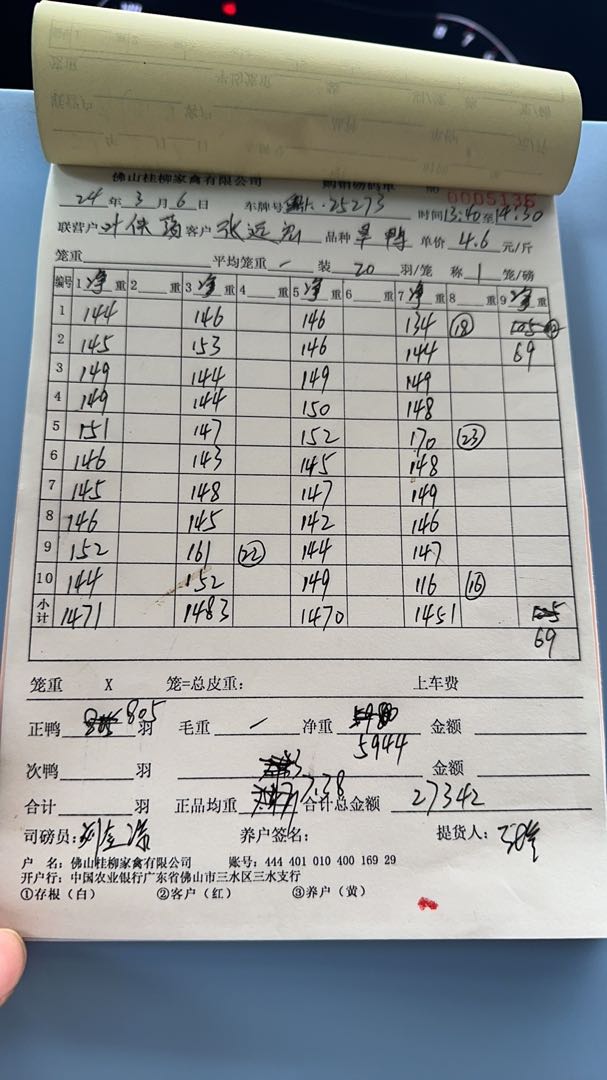 佛山桂柳家禽有限公司 购销磅码单 № 0005136
24 年 3 月 6 日 车牌号 25273 时间 13:40 至 14:30
联营户 叶 客户 张 品种 旱鸭 单价 4.6 元/斤
笼重 平均笼重 一 装 20 羽/笼 称 1 笼/磅
编号 1 净 重 2 重 3 净 重 4 重 5 净 重 6 重 7 净 重 8 重 9 净 重
1 144 146 146 134 ⑱
2 145 153 146 144 69
3 149 144 149 149
4 149 144 150 148
5 151 147 152 170 ㉓
6 146 143 145 148
7 145 148 147 149
8 146 145 142 146
9 152 161 ㉒ 144 147
10 144 152 149 116 ⑯
小计 1471 1483 1470 1451
69
笼重 X 笼=总皮重: 上车费
正鸭 805 羽 毛重 一 净重 5944 金额
次鸭 羽 金额
合计 羽 正品均重 7.38 合计总金额 27342
司磅员: 养户签名: 提货人:
户 名: 佛山桂柳家禽有限公司 账号: 444 401 010 400 169 29
开户行: 中国农业银行广东省佛山市三水区三水支行
①存根（白） ②客户（红） ③养户（黄）